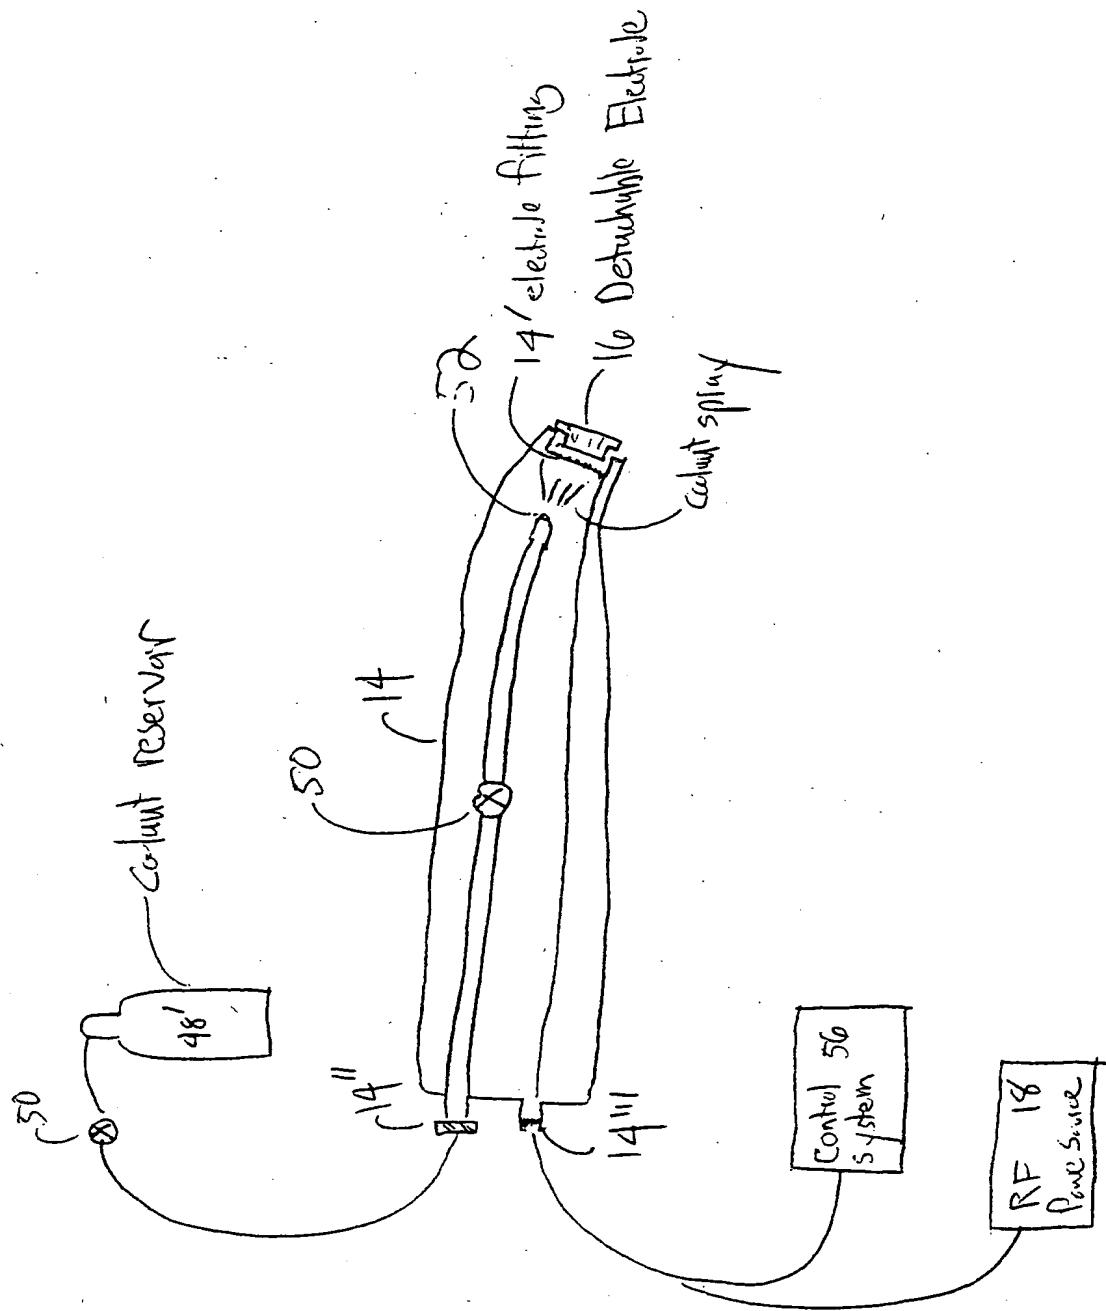 50
48'
Coolant reservoir
50
14
52
14' electrode fitting
16 Detachable Electrode
Coolant spray
14"
14'''
Control 56
system
RF 18
Power Source